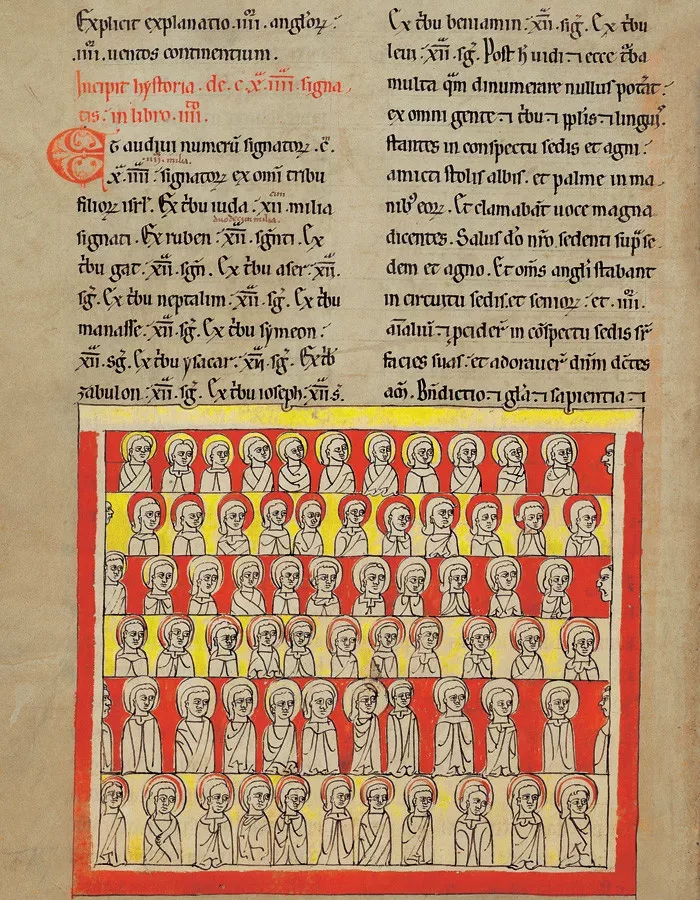 Explicit explanatio .iiii. angłorꝝ
.iiii. uentos continentium.
Incipit hystoria . de . c.x̅.iiii̅. signa
tis . in libro .iiii.to
Et audiui numerū signatorꝝ .c̅.
iiii. milia.
x̅.iiii̅. signatorꝝ ex omī tribu
filiorꝝ isrł. Ex tbu iuda .xii.cim milia
duodecim milia.
signati. Ex ruben .xii̅. sgnti. Ex
tbu gat .xii̅. sgn. Ex tbu aser .xii̅.
sg. Ex tbu neptalim .xii̅. sg. Ex tbu
manasse .xii̅. sg. Ex tbu symeon
.xii̅. sg. Ex tbu ysacar .xii̅. sg. Ex tb
zabulon .xii̅. sg. Ex tbu ioseph .xii̅. s.
Ex tbu beniamin .xii̅. sig. Ex tbu
leui .xii̅. sg. Post h̄ uidi ⁊ ecce tba
multa q̄m dinumerare nullus potat
ex omni gente ⁊ tbu ⁊ pplis ⁊ linguis.
stantes in conspectu sedis et agni
amicti stolis albis. et palme in ma
nib' eorꝝ. Et clamabāt uoce magna
dicentes. Salus dō nrō sedenti sup se
dem et agno. Et om̄s angłi stabant
in circuitu sedis. et seniorꝝ et .iiii.
aīaliū ⁊ pcider̄ in cōspectu sedis sr̄
facies suas et adorauer̄ dn̄m dc̄tes
am̄. Bn̄dictio ⁊ gła ⁊ sapientia ⁊